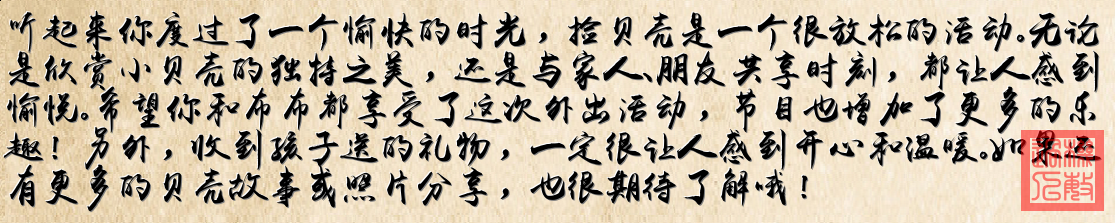 听起来你度过了一个愉快的时光，捡贝壳是一个很放松的活动。无论
是欣赏小贝壳的独特之美，还是与家人、朋友共享时刻，都让人感到
愉悦。希望你和布布都享受了这次外出活动，节目也增加了更多的乐
趣！另外，收到孩子送的礼物，一定很让人感到开心和温暖。如果还
有更多的贝壳故事或照片分享，也很期待了解哦！